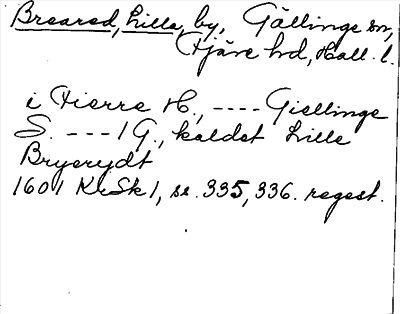 Breared, Lilla, by, Gällinge sn,
Fjäre hd, Hall. l.
i Fierre H., ---- Giellinge
S. --- 1 G., kaldet Lille
Bryerydt
1601 KrSk 1, s. 335, 336. regest.